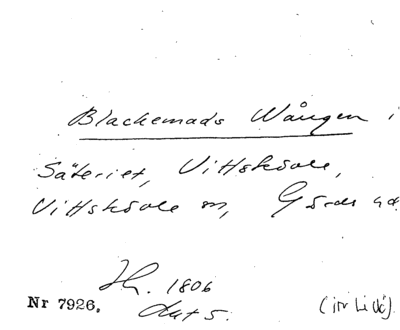 Blackemads Wången i
Säteriet, Vittskövle,
Vittskövle sn, Gärds hd
Jh. 1806
Akt 5.
Nr 7926.